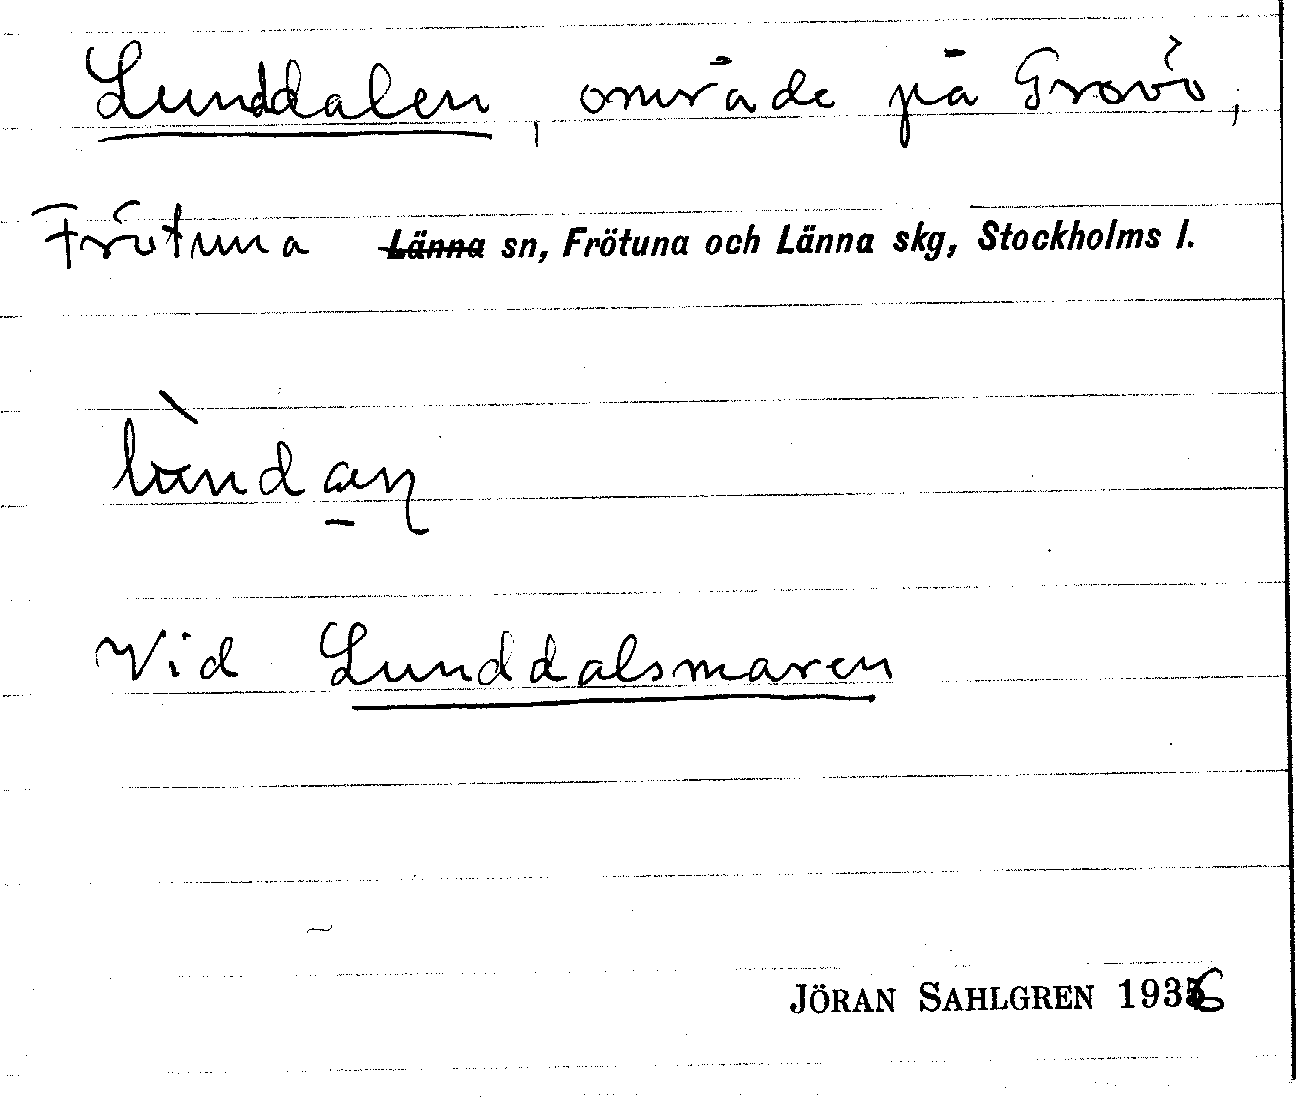 Lunddalen, område på Gråvö,
Frötuna Länna sn, Frötuna och Länna skg, Stockholms l.
Vid Lunddalsmaren
JÖRAN SAHLGREN 1936